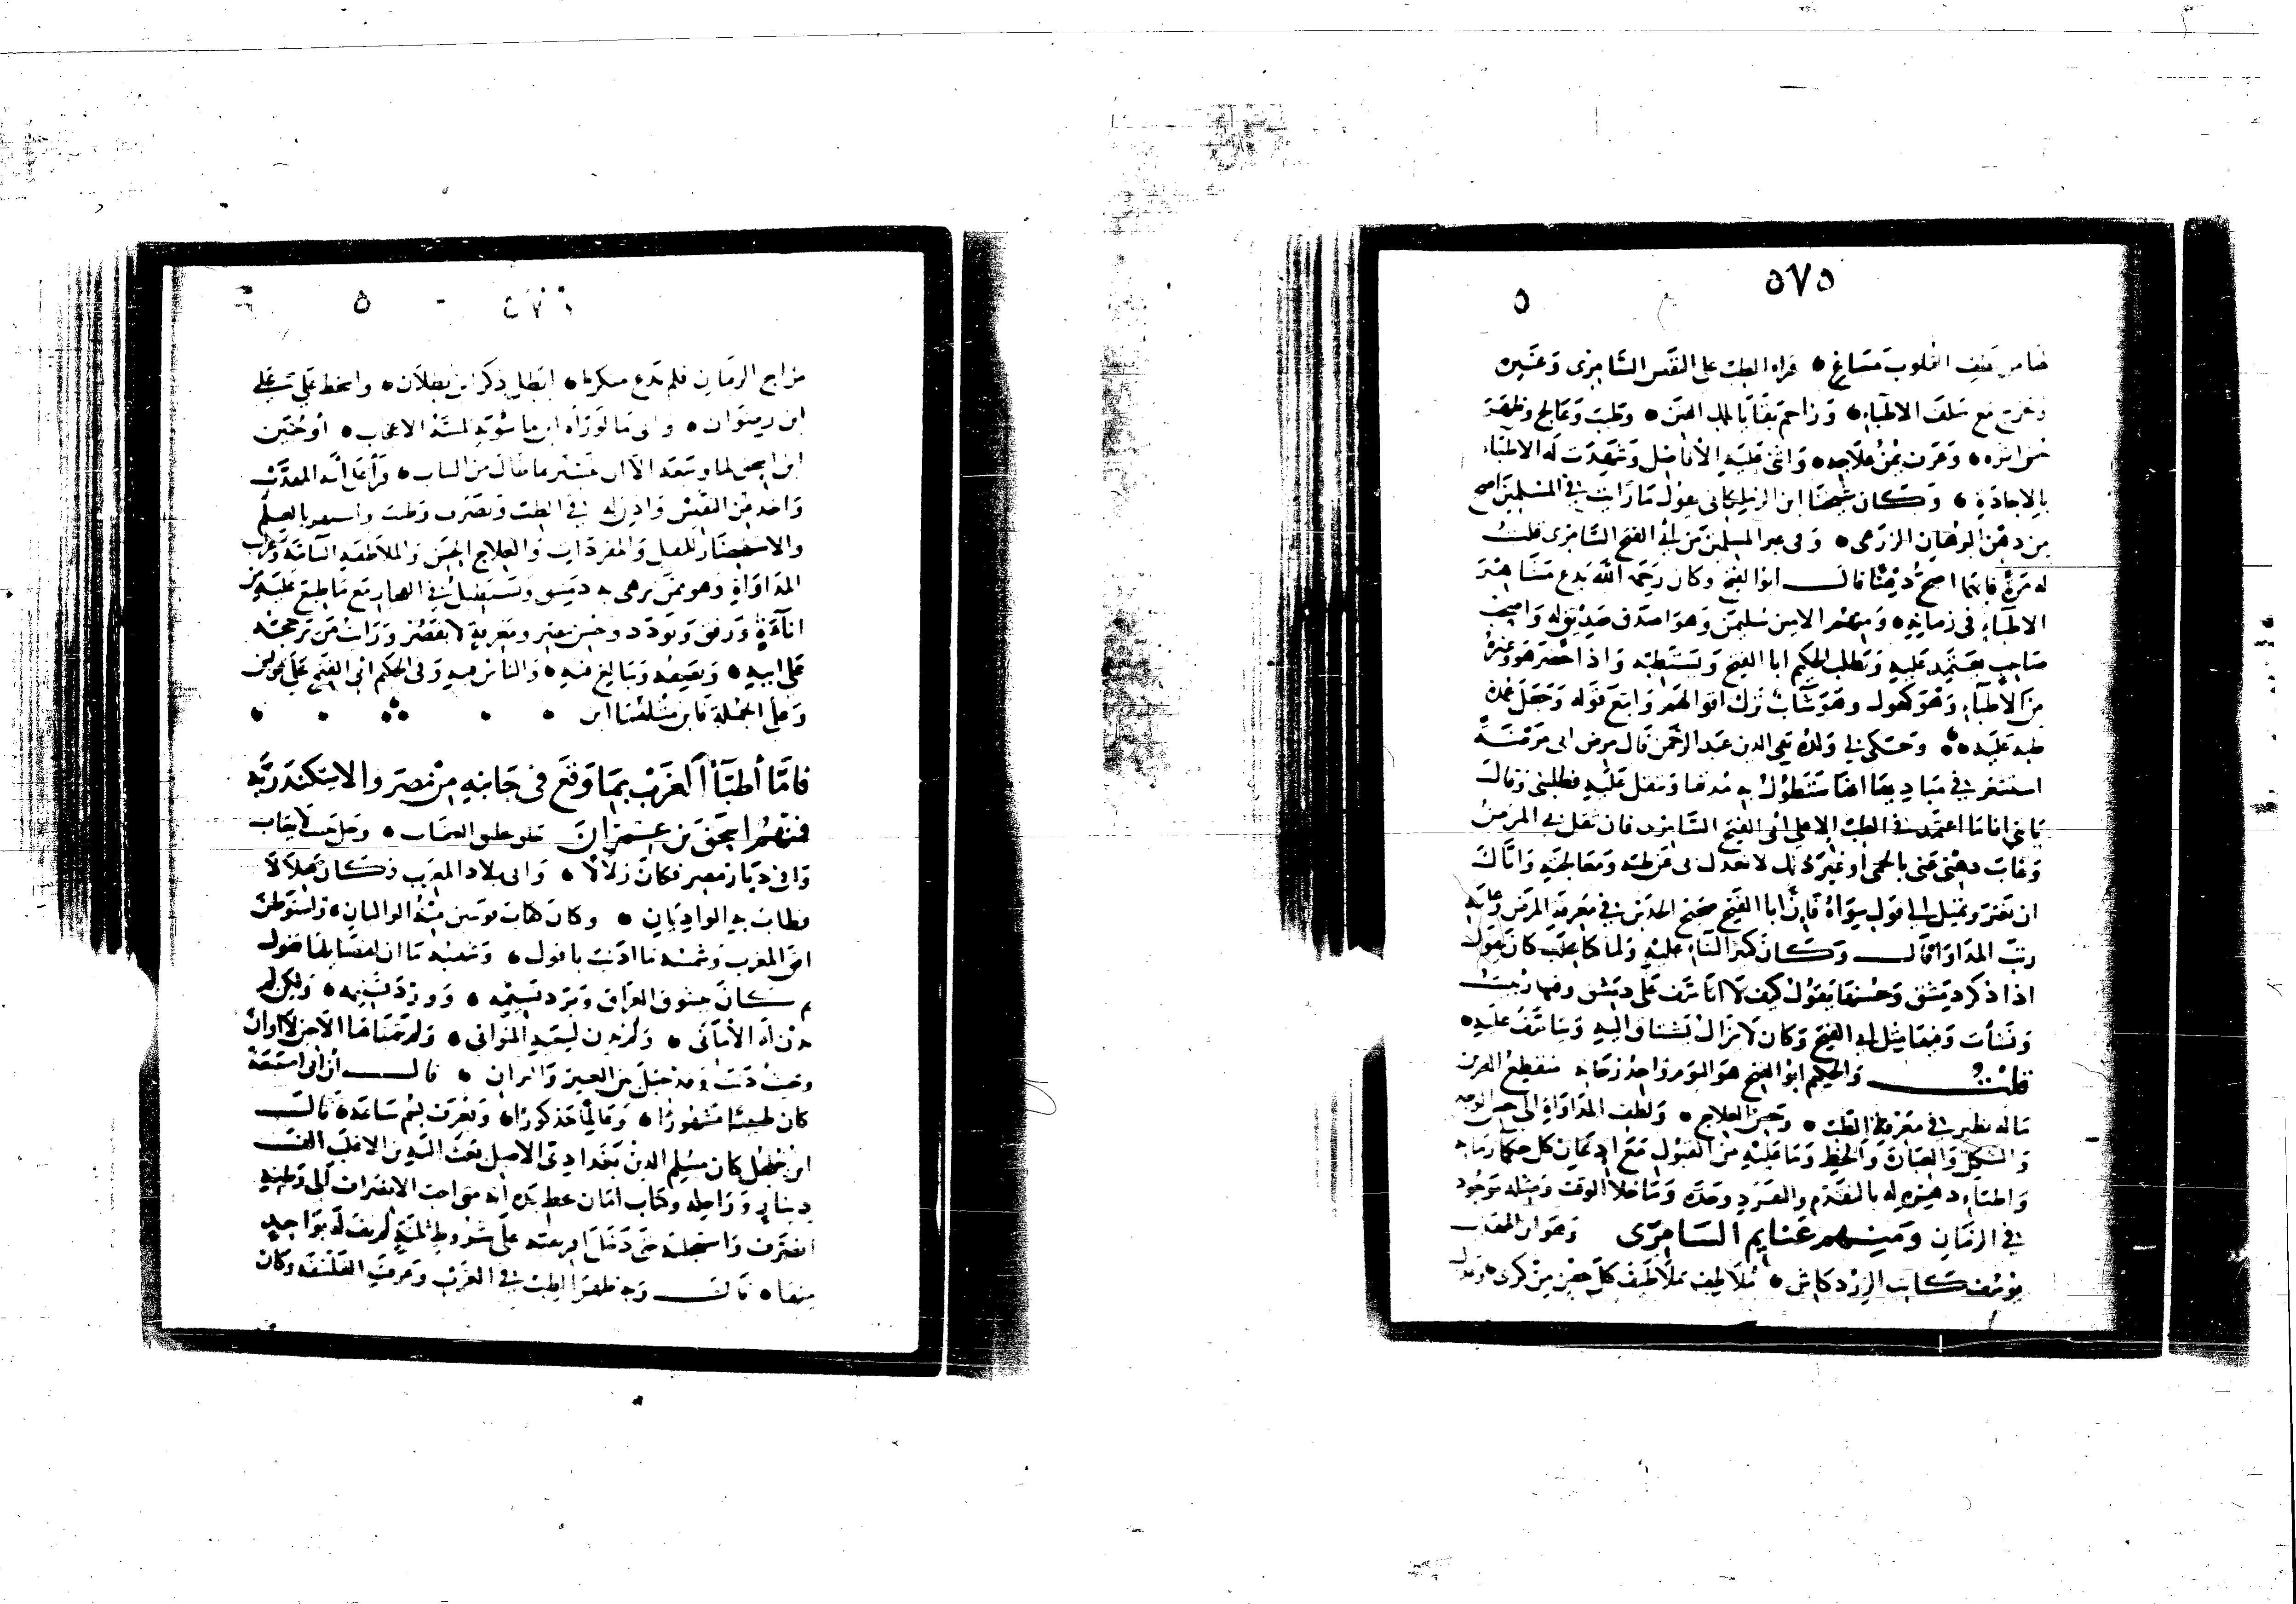 ٥٧٥
٥
من قطف القلوب مساغ قراء الطب على الشامري وغيره
وخرج مع سلف الاطباء وزاحم بقايا وطب وعالج وظهرت
وعرف يمن علاجه واثنى عليه الأفاضل وشهدت له الاطباء
بالاجادة وكان شيخنا ابن الزملكاني يقول ما رايت في المسلمين اصح
من ذهن البرهان الزرعي وفي غير المسلمين من أبي الفتح السامري قلت
له مرة فايهما اصح ذهنا قال ابو الفتح وكان رحمه الله
الاطباء في زمانه ومنهم الامين سليمن وهو اصدق صديق له واصحب
صاحب يعتمد عليه ويطلب الحكيم ابا الفتح ويستطبه واذا احضر هو وغيره
من الأطباء وهو كهول وهو شاب ترك اقوالهم واتبع قوله وجعل عمدة
طبه عليه وحكى لي ولده تقي الدين عبد الرحمن قال مرض ابي مرضة
استشعر في مباديها انها ستتطول به مدتها وتثقل عليه فطلبني وقال
يا بني انا ما اعتمد في الطب الا على ابي الفتح السامري فان ثقل بي المرض
وغاب ذهني عني بالحمى او غير ذلك لا تعدل بي عن طبه ومعالجته واياك
ان تغتر وتميل الى قول سواه فان ابا الفتح صحيح الحدس في معرفة المرض
المداواة قال وكان كثير الثناء عليه ولما كنا بحلب كان يقول
اذا ذكر دمشق وحسنها يقول كيف لا اتأسف على دمشق وفيها ربيت
ونشأت وفيها مثل ابي الفتح وكان لا يزال يشتاق اليه ويتأسف عليه
قلت والحكيم ابو الفتح هو اليوم واحد زمانه منقطع القرين
ما له نظير في معرفة الطب وحسن العلاج ولطف المداواة الى حسن الوجه
والشكل والعبارة والخط وما عليه من القبول مع اذعان كل حكماء زمانه
واطباء دهره له بالتقدم والتفرد وحده وما خلا الوقت ومثله موجود
في الزمان ومنهم غنايم السامري وهو ابن المهذب
يوسف كاتب الزردكاش ملاطف كل جفن من كرى
٥٧٦
٥
مزاج الزمان فلم يدع منكرها ابطل ذكر ابن بطلان وانحط علي بن علي
ابن رضوان وابى ما لو رآه ابن ماسويه لسد الابواب او حنين
ابن اسحق لما وسعه الا ان مما قال من الباب قرأ على أبيه المهذب
واخذ من النفيس واذن له في الطب وتصرف وطب واشتهر بالعلم
والاستحضار للنقل والمفردات والعلاج الحسن والملاطفة التامة
المداواة وهو ممن تزهى به دمشق وتستطيل في الفخار مع ما طبع عليه من
اناءة ورفق وتودد وحسن عشرة ومعرفة لا تقصر ورايت من يرجحه
على ابيه ويصفه ويبالغ فيه والناس فيه وفي الحكيم ابي الفتح على قولين
وعلى الجملة فاين مثلهما اين
فامّا أطبّاء الغرب بما وقع في جانبه من مصر والاسكندريّة
فمنهم اسحق بن عمران علق السحاب وحل حيث لا يعاب
وافى ديار مصر فكان زلالا واتى بلاد المغرب فكان هلالا
فطاب به الواديان وكان هناك يونس منه الواليان واستوطن
افق المغرب وشمسه ما اذنت بافول وشعبه ما ان لعصا لها نضول
كان يشوق العراق وبرد نسيمه وورد تسنيمه ولكن لم
تدن له الأماني ولم يدن لبعيد المواني ولم تمناها الا حين لا اوان
وحيث دنت وقد حيل بين العير والنزوان قال ابن أبي اصيبعة
كان طبيبا مشهورا وعالما مذكورا ويعرف بسم ساعة قال
ابن جلجل كان مسلم الدين بغدادي الاصل بعث اليه بن الاغلب الف
دينار وراحلة وكتاب امان بخط يده انه متى احب الانصراف الى وطنه
انصرف واستجلبه حتى دخل افريقية على شروط ثلثة لم يف له بواحد
منها قال وبه ظهر الطب في الغرب وعرفت الفلسفة وكان